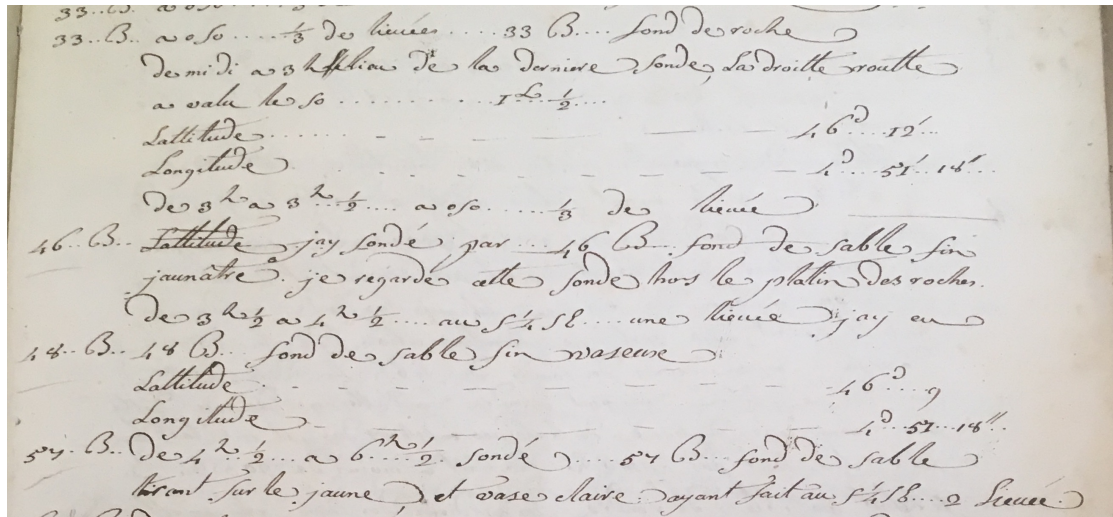 33.. B.. a oso ..... 1/3 de lieuées .... 33 B.... fond de roche
de midi a 3 h lieu de la derniere sonde, La droitte routte
a valu le so .......... 1 L 1/2 ....
Lattitude ........ 46 d ... 12' ...
Longitude ........ 4 d ... 51' .. 18" ..
De 3 h a 3 h 1/2 .... a oso ..... 1/3 de lieuée
46.. B.. Lattitude jay sondé par .... 46 B... fond de sable fin
jaunâtre. je regardé cette sonde hors le platin des roches.
De 3 h 1/2 a 4 h 1/2 .... au s 1/4 sE .... une lieuée jay eu
48.. B.. 48 B... fond de sable fin vaseuse
Lattitude ........ 46 d ... 9
Longitude ........ 4 d ... 51 .. 18" ..
57.. B.. De 4 h 1/2 ... a 6 h 1/2 sondé ..... 57 B... fond de sable
tirant sur le jaune, et vase claire. ayant fait au s 1/4 sE .... 2 Lieuée.